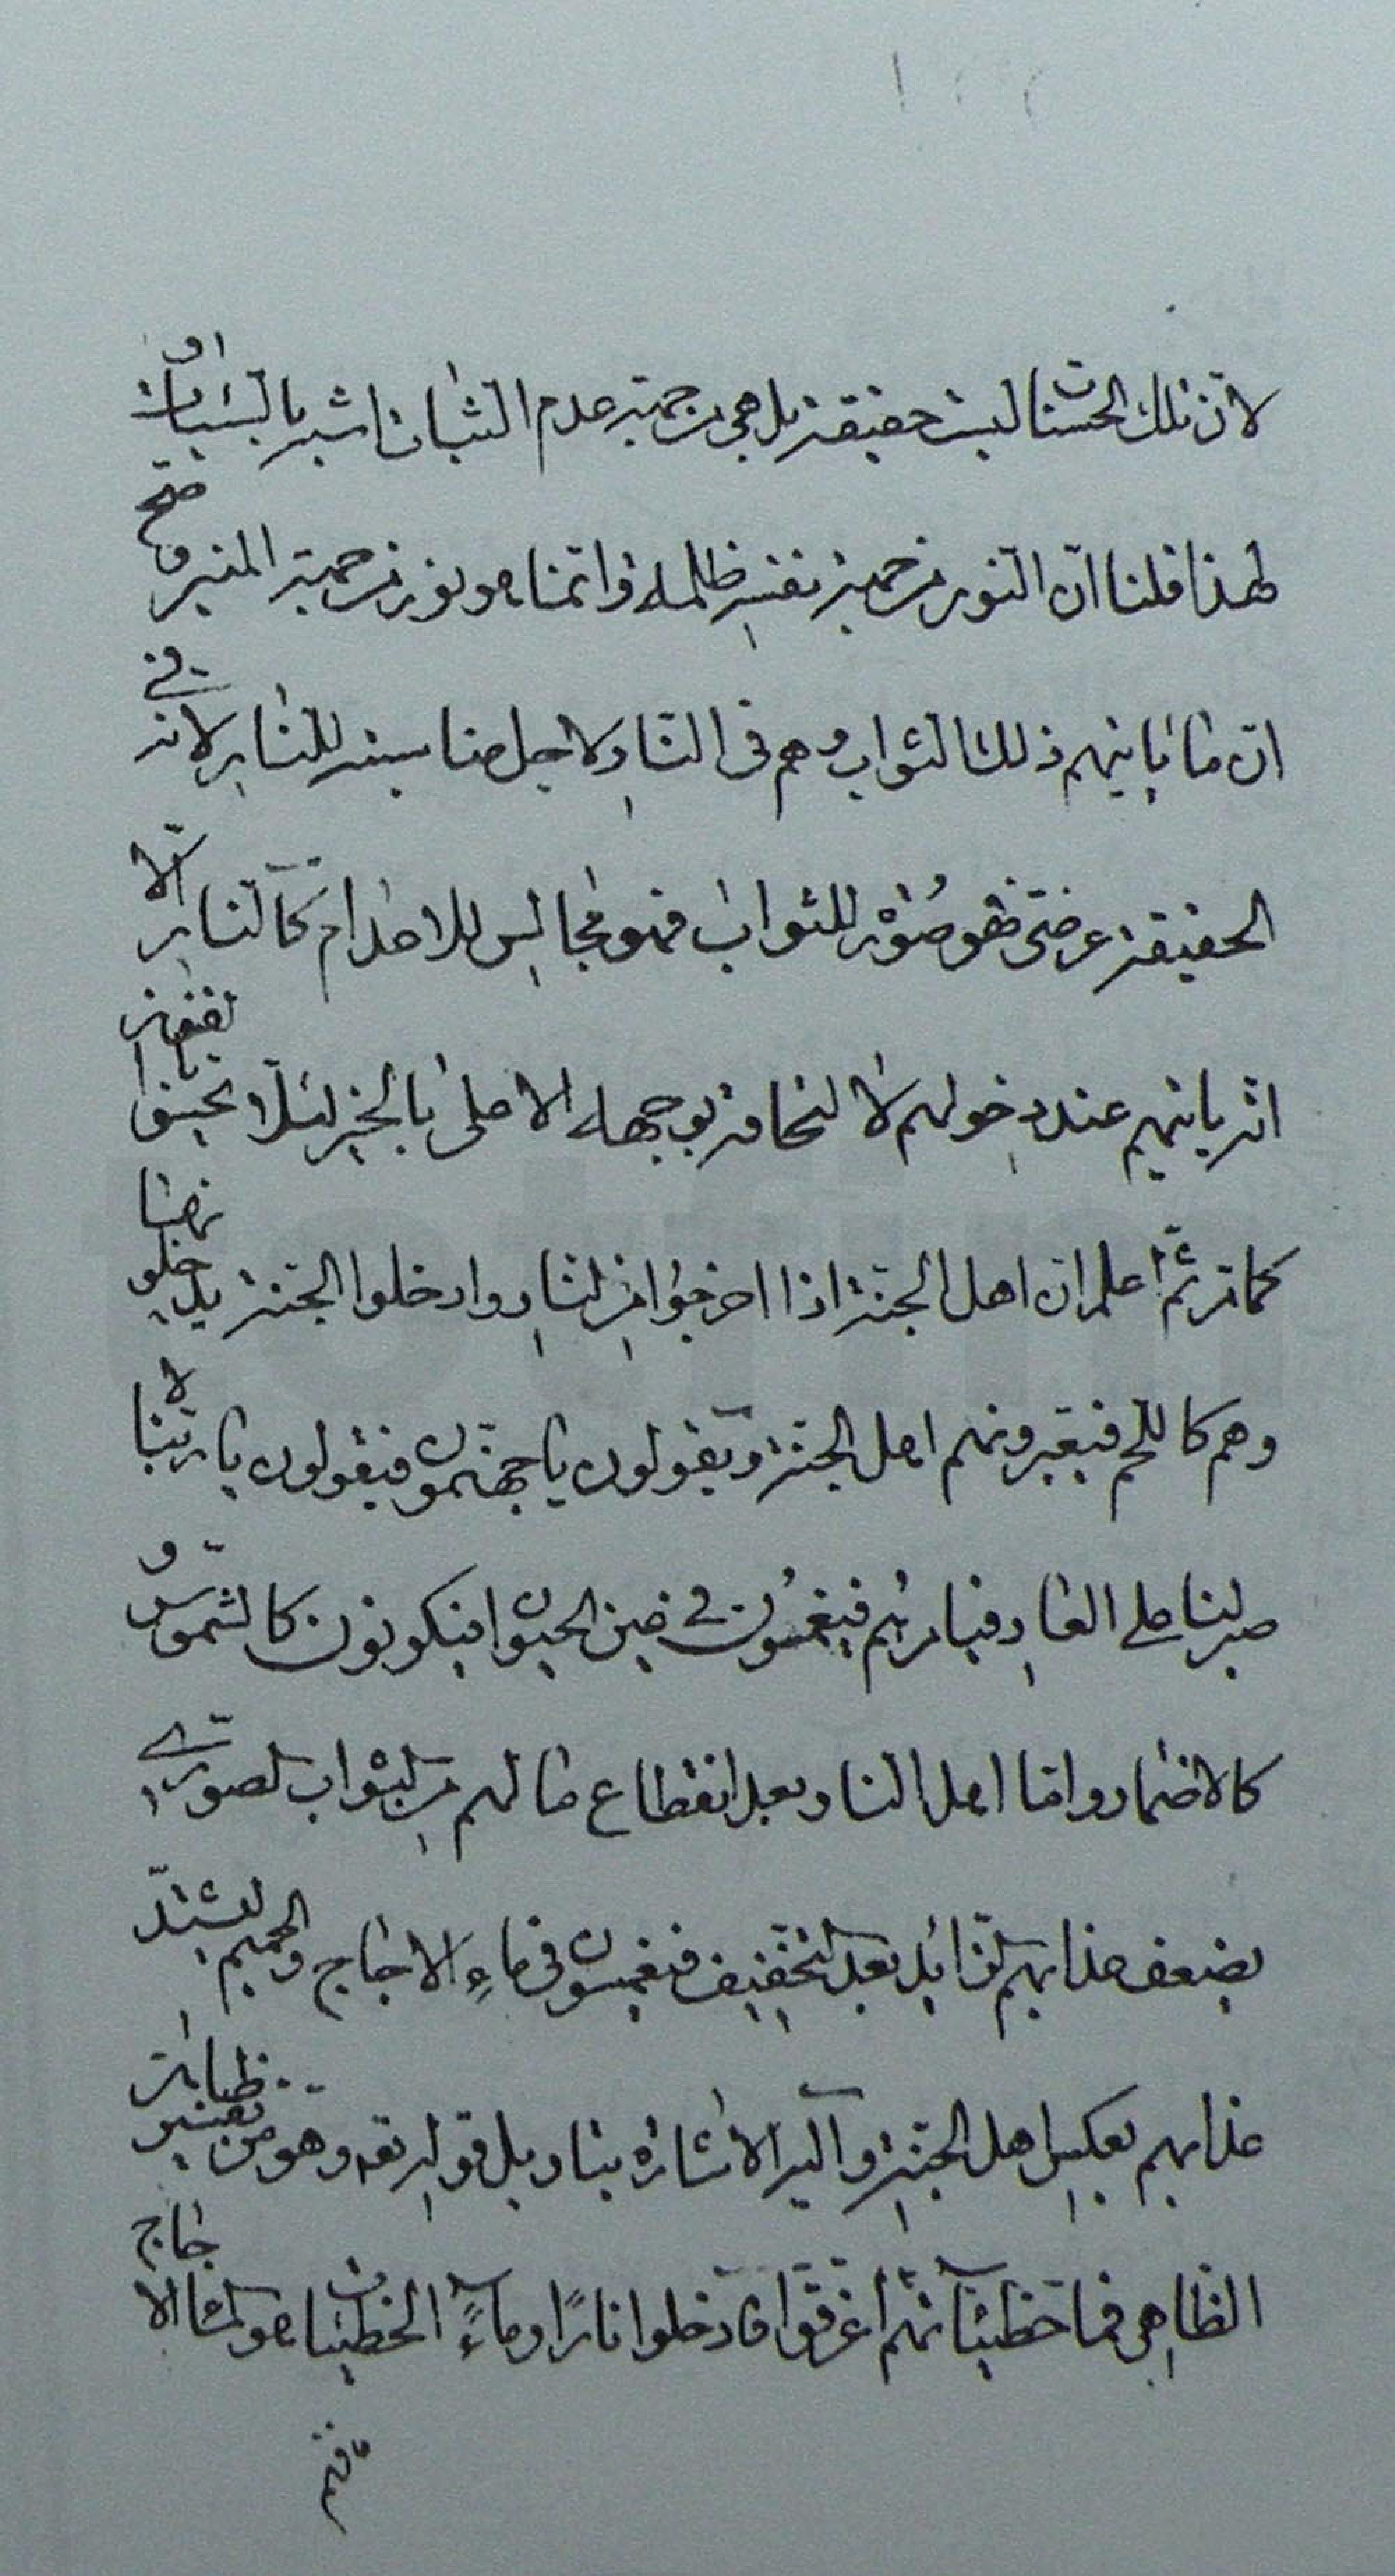 لانّ تلك الحسنات ليست حقيقة بل هي من جهة عدم الثبات اشبه بالسيّئات و
لهذا قلنا انّ النور من جهة نفسه ظلمة وانّما هو نور من جهة المنير وصحّ
انّ ما ياتيهم ذلك الثواب وهم في النار لاجل مناسبته للنار لانه في
الحقيقة عرضىّ فهو صورة للثواب فهو مجالس للاعدام كالنار الّا
انه ياتيهم عند دخولهم لا لنحافه بوجهه الاعلى بالخير لئلّا يحسّوا بالفقر
كما مرّ ثمّ اعلم ان اهل الجنة اذا اخرجوا من النار وادخلوا الجنة يدخلونها
وهم كاللحم فيعيّرونهم اهل الجنة ويقولون يا جهنّميون فيقولون يا ربّنا لا
صبر لنا على العار فيامر بهم فيغمسون في عين الحيوان فيكونون كالشموس و
كالاقمار وامّا اهل النار وبعد انقطاع ما لهم من الثواب الصوري
يضعف عذابهم لتزائد بعد التخفيف فيغمسون في ماء الاجاج والحميم ليشتدّ
عذابهم بعكس اهل الجنة واليه الاشارة بتاويل قوله تعه وهو من تفسير ظاهر
الظاهر فمما خطيئاتهم اغرقوا فادخلوا نارًا وماء الخطيئات هو الماء الاجاج
فهم